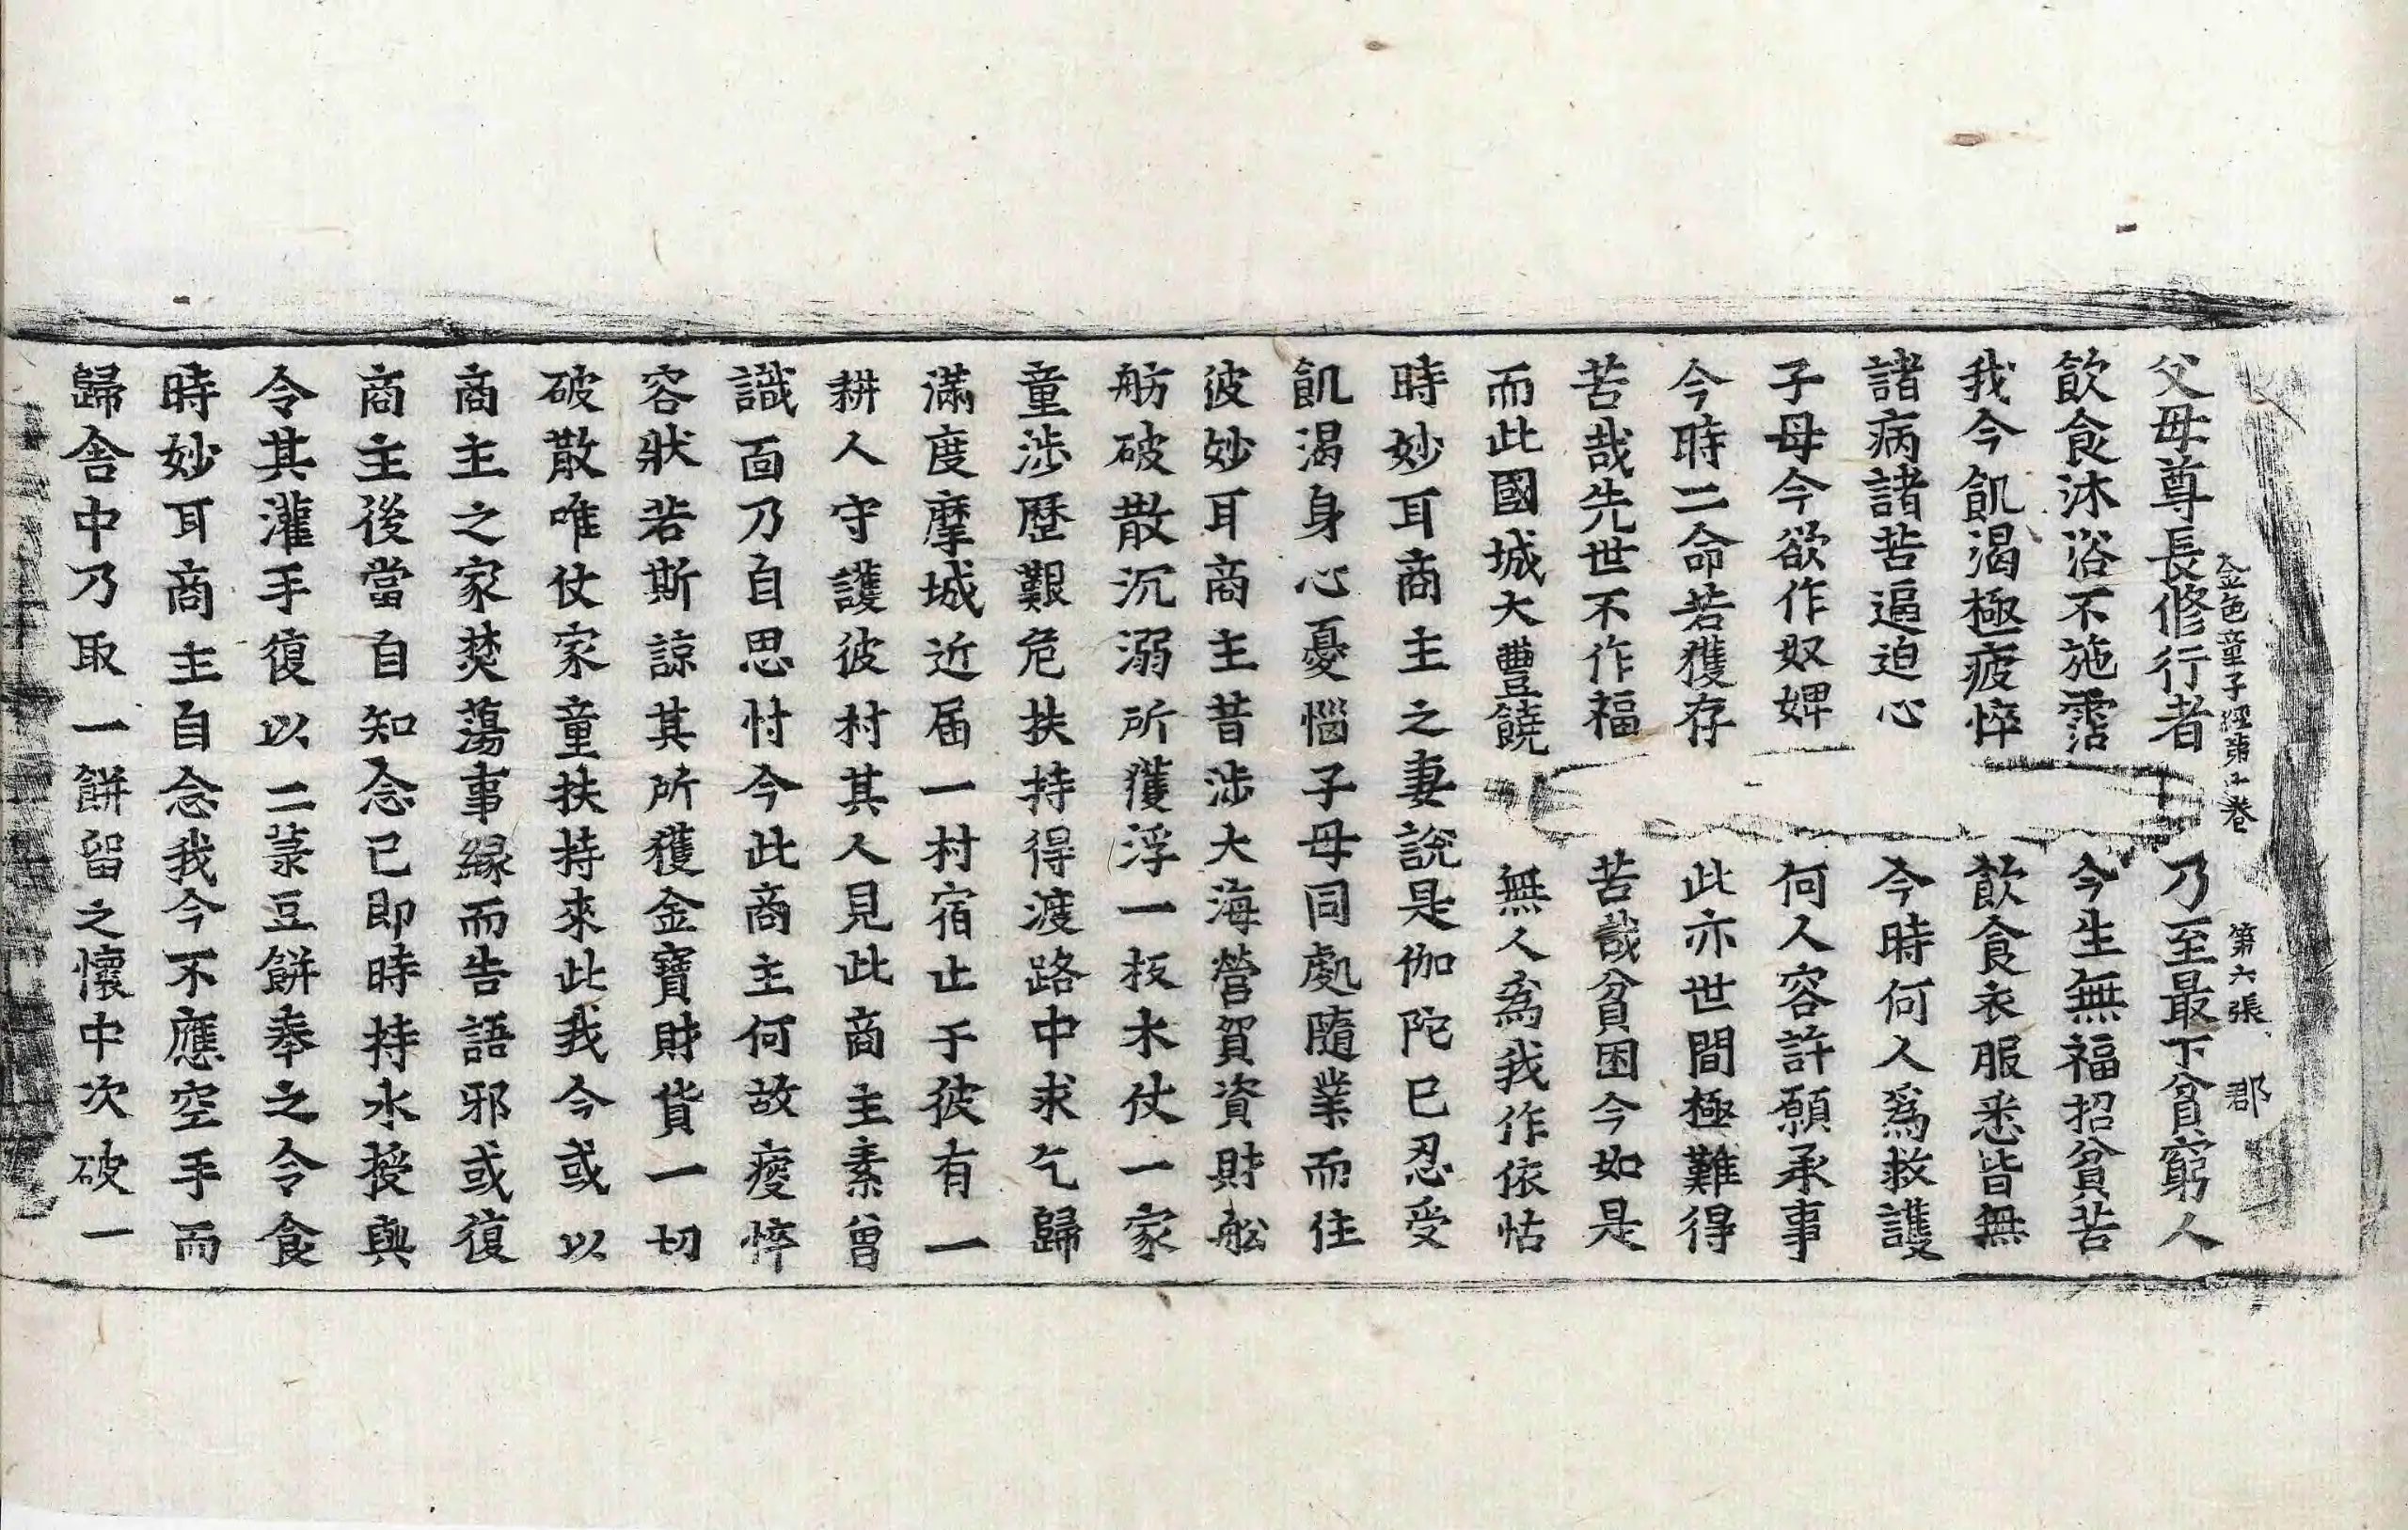 金色童子經第十卷　第六張　郡
父母尊長修行者　乃至最下貧窮人
飲食沐浴不施霑　今生無福招貧苦
我今飢渴極疲悴　飲食衣服悉皆無
諸病諸苦逼迫心　今時何人爲救護
子母今欲作奴婢　何人容許願承事
今時二命若獲存　此亦世間極難得
苦哉先世不作福　苦哉貧困今如是
而此國城大豐饒　無人爲我作依怙
時妙耳商主之妻說是伽陀已忍受
飢渴身心憂惱子母同處隨業而住
彼妙耳商主昔涉大海營賀資財舩
舫破散沉溺所獲浮一板木仗一家
童涉歷艱危扶持得渡路中求乞歸
滿度摩城近届一村宿止于彼有一
耕人守護彼村其人見此商主素曾
識面乃自思忖今此商主何故瘦悴
容狀若斯諒其所獲金寶財貨一切
破散唯仗家童扶持來此我今或以
商主之家焚蕩事緣而告語邪或復
商主後當自知念已即時持水授與
令其灌手復以二菉豆餅奉之令食
時妙耳商主自念我今不應空手而
歸舍中乃取一餅留之懷中次破一